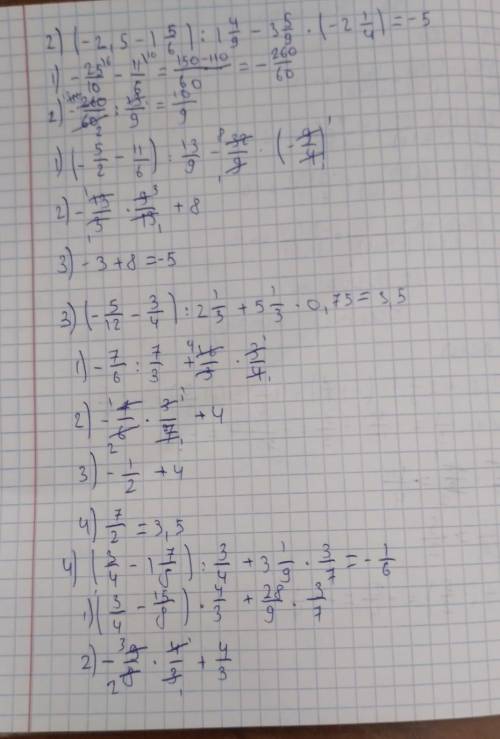 2) (-2,5 - 1 5/6) : 1 4/9 - 3 5/9 · (-2 1/4) = -5
1) - 25/10 - 11/6 = 150-110/60 = - 260/60
2) - 260/60 : 13/9 =
1) (- 5/2 - 11/6) : 13/9 - 32/9 · (- 9/4)
2) - 13/3 · 9/13 + 8
3) -3 + 8 = -5
3) (- 5/12 - 3/4) : 2 1/3 + 5 1/3 · 0,75 = 3,5
1) - 7/6 : 7/3 + 16/3 · 3/4
2) - 7/6 · 3/7 + 4
3) - 1/2 + 4
4) 7/2 = 3,5
4) (3/4 - 1 7/8) : 3/4 + 3 1/9 · 3/7 = - 1/6
1) (3/4 - 15/8) · 4/3 + 28/9 · 3/7
2) - 9/8 · 4/3 + 4/3